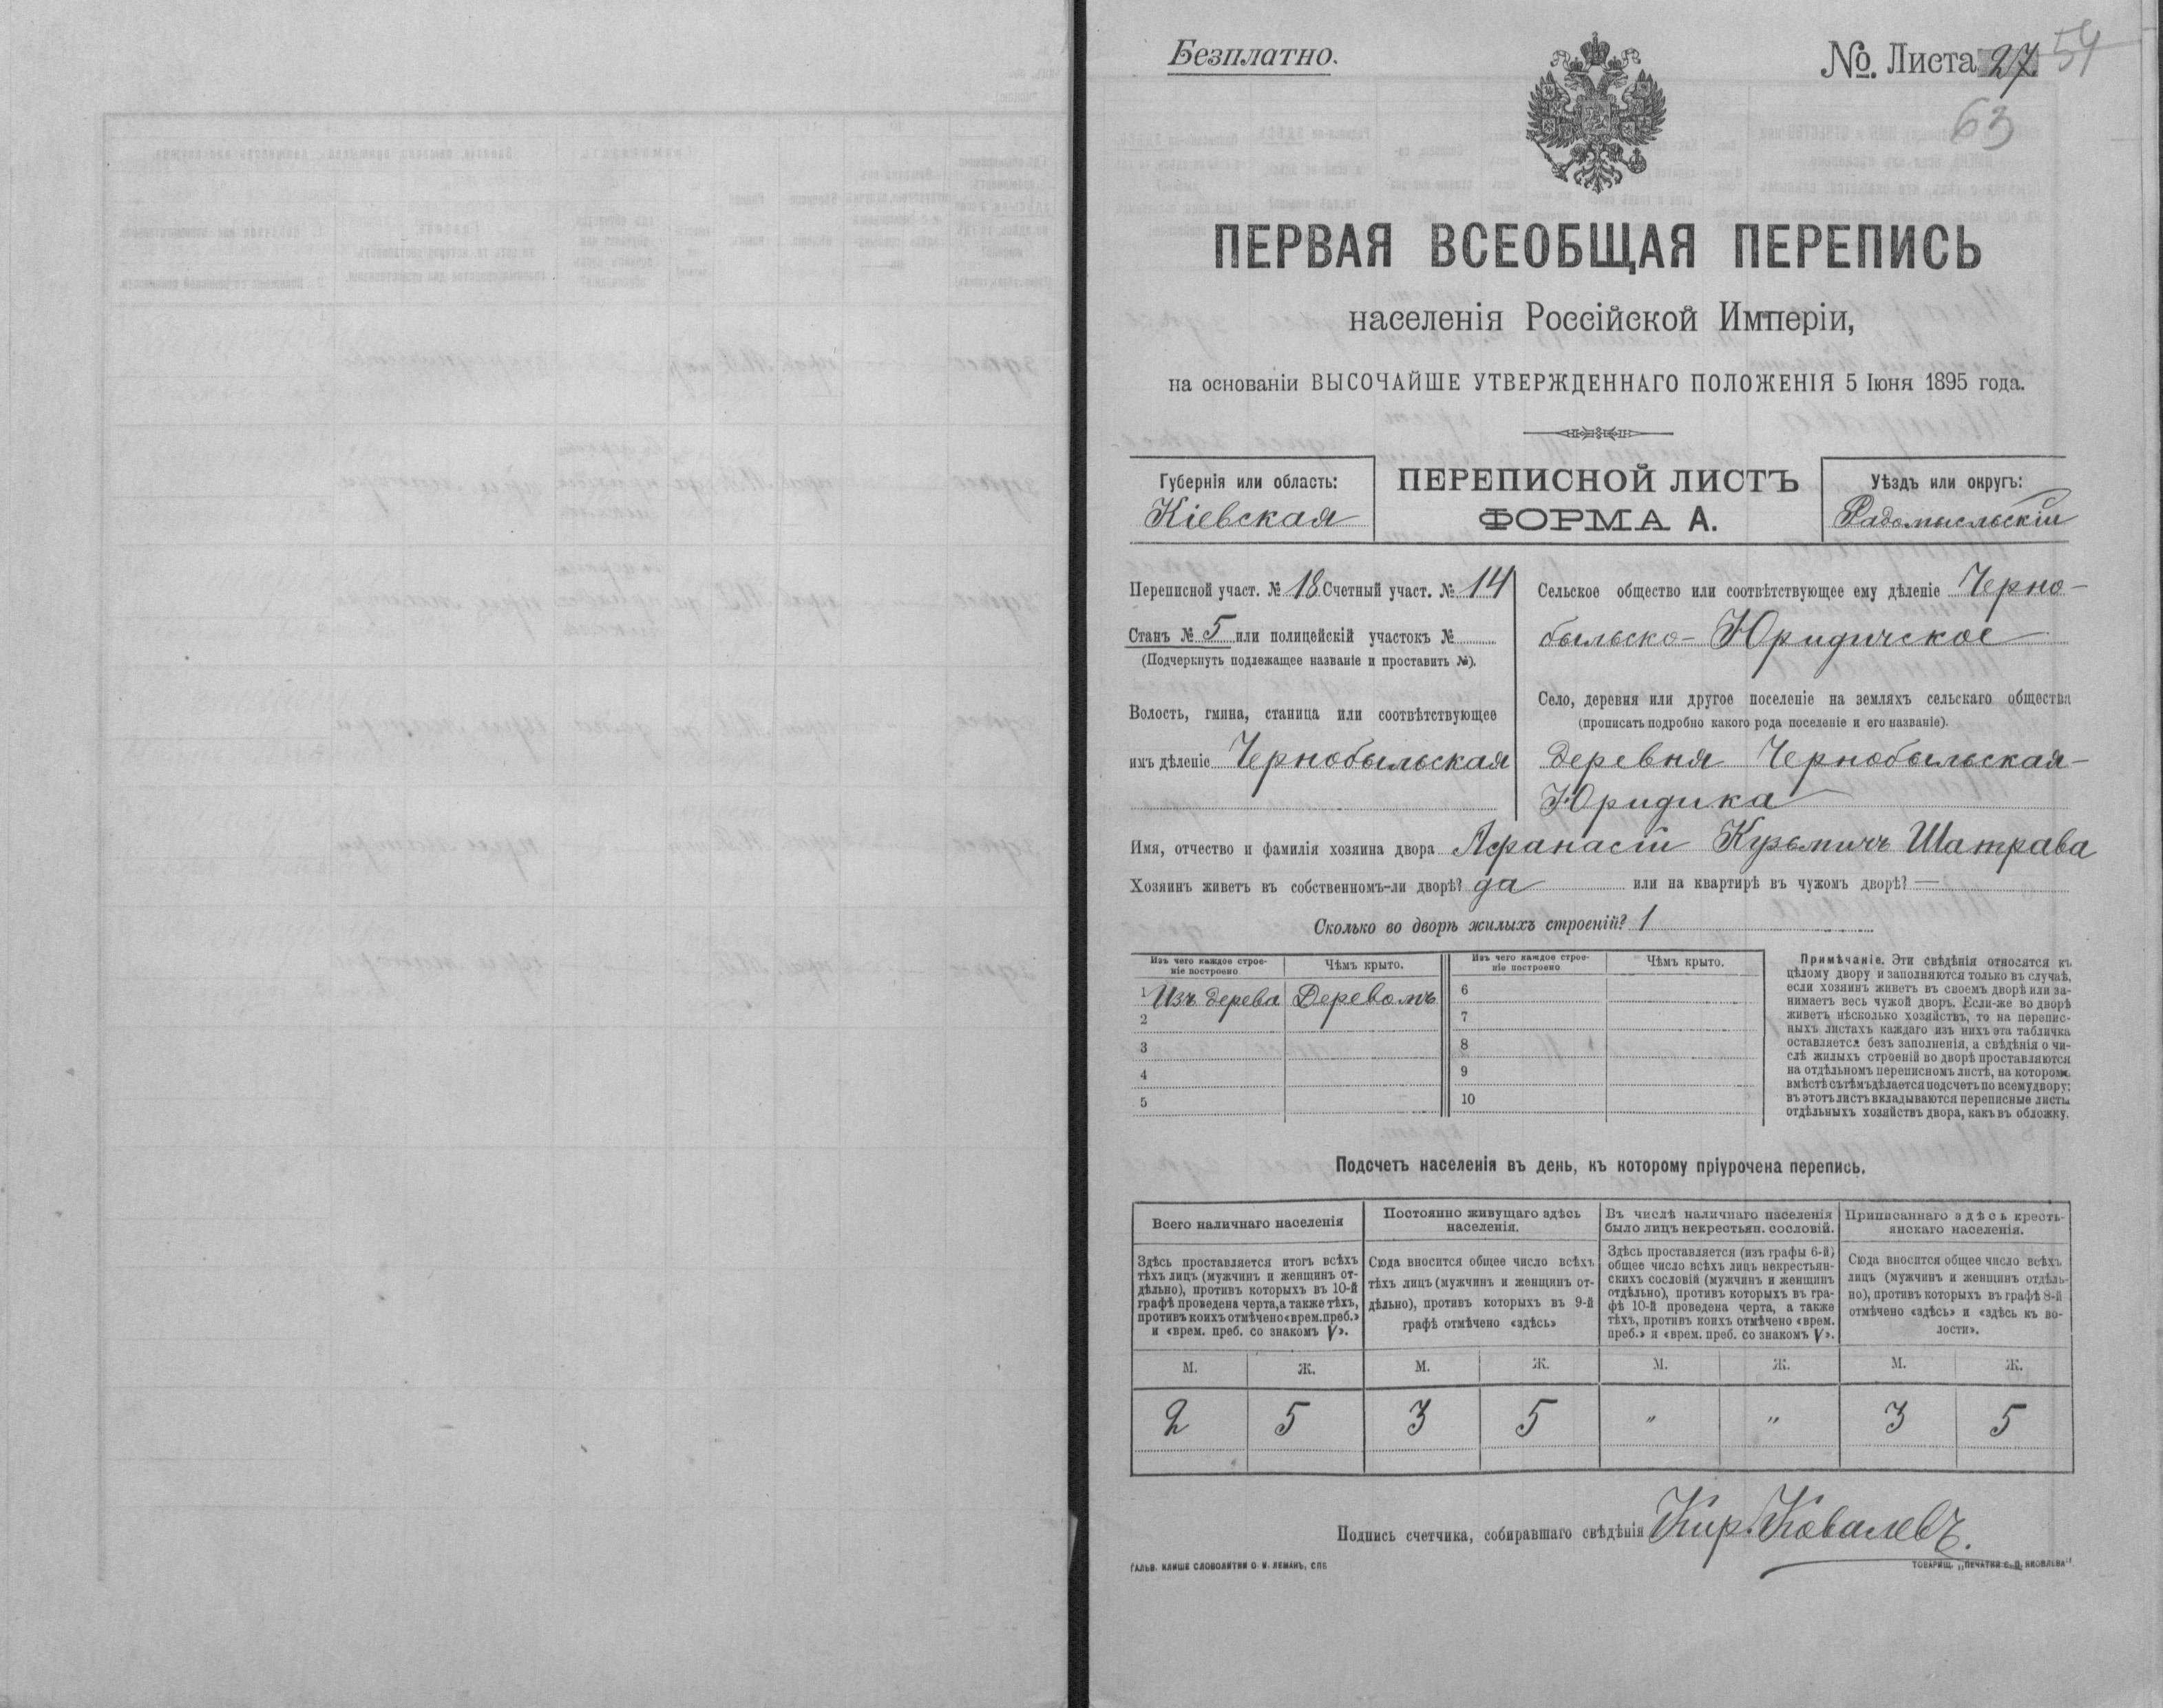 Безплатно.
No. Листа 27. 54
63
ПЕРВАЯ ВСЕОБЩАЯ ПЕРЕПИСЬ
населенія Россійской Имперіи,
на основаніи ВЫСОЧАЙШЕ УТВЕРЖДЕННАГО ПОЛОЖЕНІЯ 5 Іюня 1895 года.
Губернія или область:
Кіевская
ПЕРЕПИСНОЙ ЛИСТЪ
ФОРМА А.
Уѣздъ или округъ:
Радомысльскій
Переписной участ. № 18. Счетный участ. № 14
Станъ № 5 или полицейскій участокъ №
(Подчеркнуть подлежащее названіе и проставить №).
Волость, гмина, станица или соотвѣтствующее
имъ дѣленіе Чернобыльская
Сельское общество или соотвѣтствующее ему дѣленіе Черно-
быльско-Юридичское
Село, деревня или другое поселеніе на земляхъ сельскаго общества
(прописать подробно какого рода поселеніе и его названіе).
деревня Чернобыльская-
Юридика
Имя, отчество и фамилія хозяина двора Афанасій Кузьмичъ Шатрава
Хозяинъ живетъ въ собственномъ-ли дворѣ? да или на квартирѣ въ чужомъ дворѣ? —
Сколько во дворѣ жилыхъ строеній? 1
Изъ чего каждое строе-
ніе построено
Чѣмъ крыто.
Изъ чего каждое строе-
ніе построено
Чѣмъ крыто.
1 Изъ дерева Деревомъ
2
3
4
5
6
7
8
9
10
Примѣчаніе. Эти свѣдѣнія относятся къ
цѣлому двору и заполняются только въ случаѣ,
если хозяинъ живетъ въ своемъ дворѣ или за-
нимаетъ весь чужой дворъ. Если-же во дворѣ
живетъ нѣсколько хозяйствъ, то на перепис-
ныхъ листахъ каждаго изъ нихъ эта табличка
оставляется безъ заполненія, а свѣдѣнія о чи-
слѣ жилыхъ строеній во дворѣ проставляются
на отдѣльномъ переписномъ листѣ, на которомъ
вмѣстѣ съ тѣмъ дѣлается подсчетъ по всему двору;
въ этотъ листъ вкладываются переписные листы
отдѣльныхъ хозяйствъ двора, какъ въ обложку.
Подсчетъ населенія въ день, къ которому пріурочена перепись.
Всего наличнаго населенія
Здѣсь проставляется итогъ всѣхъ
тѣхъ лицъ (мужчинъ и женщинъ от-
дѣльно), противъ которыхъ въ 10-й
графѣ проведена черта, а также тѣхъ,
противъ коихъ отмѣчено «врем. преб.»
и «врем. преб. со знакомъ V».
Постоянно живущаго здѣсь
населенія.
Сюда вносится общее число всѣхъ
тѣхъ лицъ (мужчинъ и женщинъ от-
дѣльно), противъ которыхъ въ 9-й
графѣ отмѣчено «здѣсь»
Въ числѣ наличнаго населенія
было лицъ некрестьян. сословій.
Здѣсь проставляется (изъ графы 6-й)
общее число всѣхъ лицъ некрестьян-
скихъ сословій (мужчинъ и женщинъ
отдѣльно), противъ которыхъ въ гра-
фѣ 10-й проведена черта, а также
тѣхъ, противъ коихъ отмѣчено «врем.
преб.» и «врем. преб. со знакомъ V».
Приписаннаго здѣсь кресть-
янскаго населенія.
Сюда вносится общее число всѣхъ
лицъ (мужчинъ и женщинъ отдѣль-
но), противъ которыхъ въ графѣ 8-й
отмѣчено «здѣсь» и «здѣсь къ во-
лости».
М. Ж. М. Ж. М. Ж. М. Ж.
2 5 3 5 " " 3 5
Подпись счетчика, собиравшаго свѣдѣнія Кир. Ковалевъ.
ГАЛЬВ. КЛИШЕ СЛОВОЛИТНИ О. И. ЛЕМАНЪ, СПБ
ТОВАРИЩ. „ПЕЧАТНЯ С. П. ЯКОВЛЕВА".